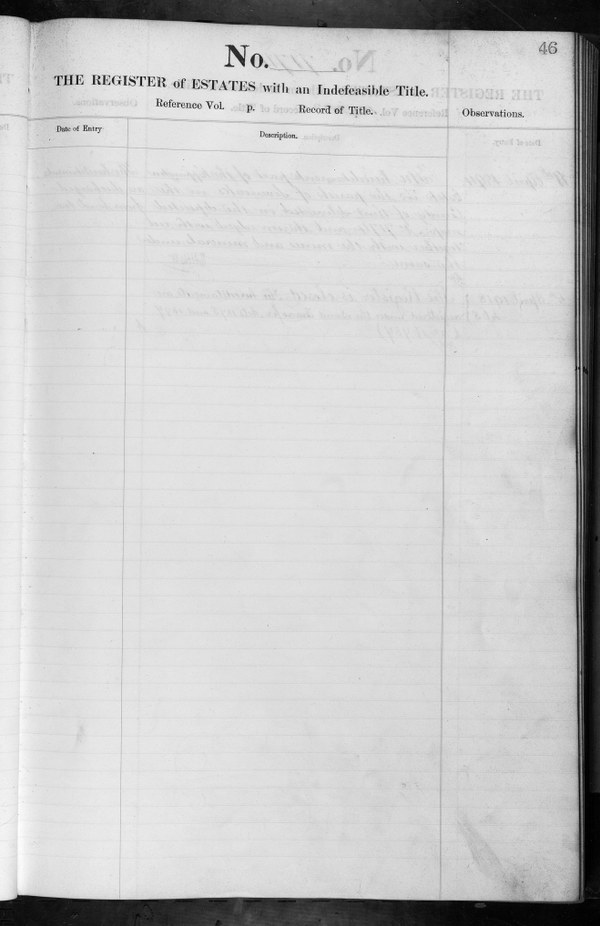 46
No.
THE REGISTER of ESTATES with an Indefeasible Title.
Reference Vol. p. Record of Title.
Observations.
Date of Entry
Description.